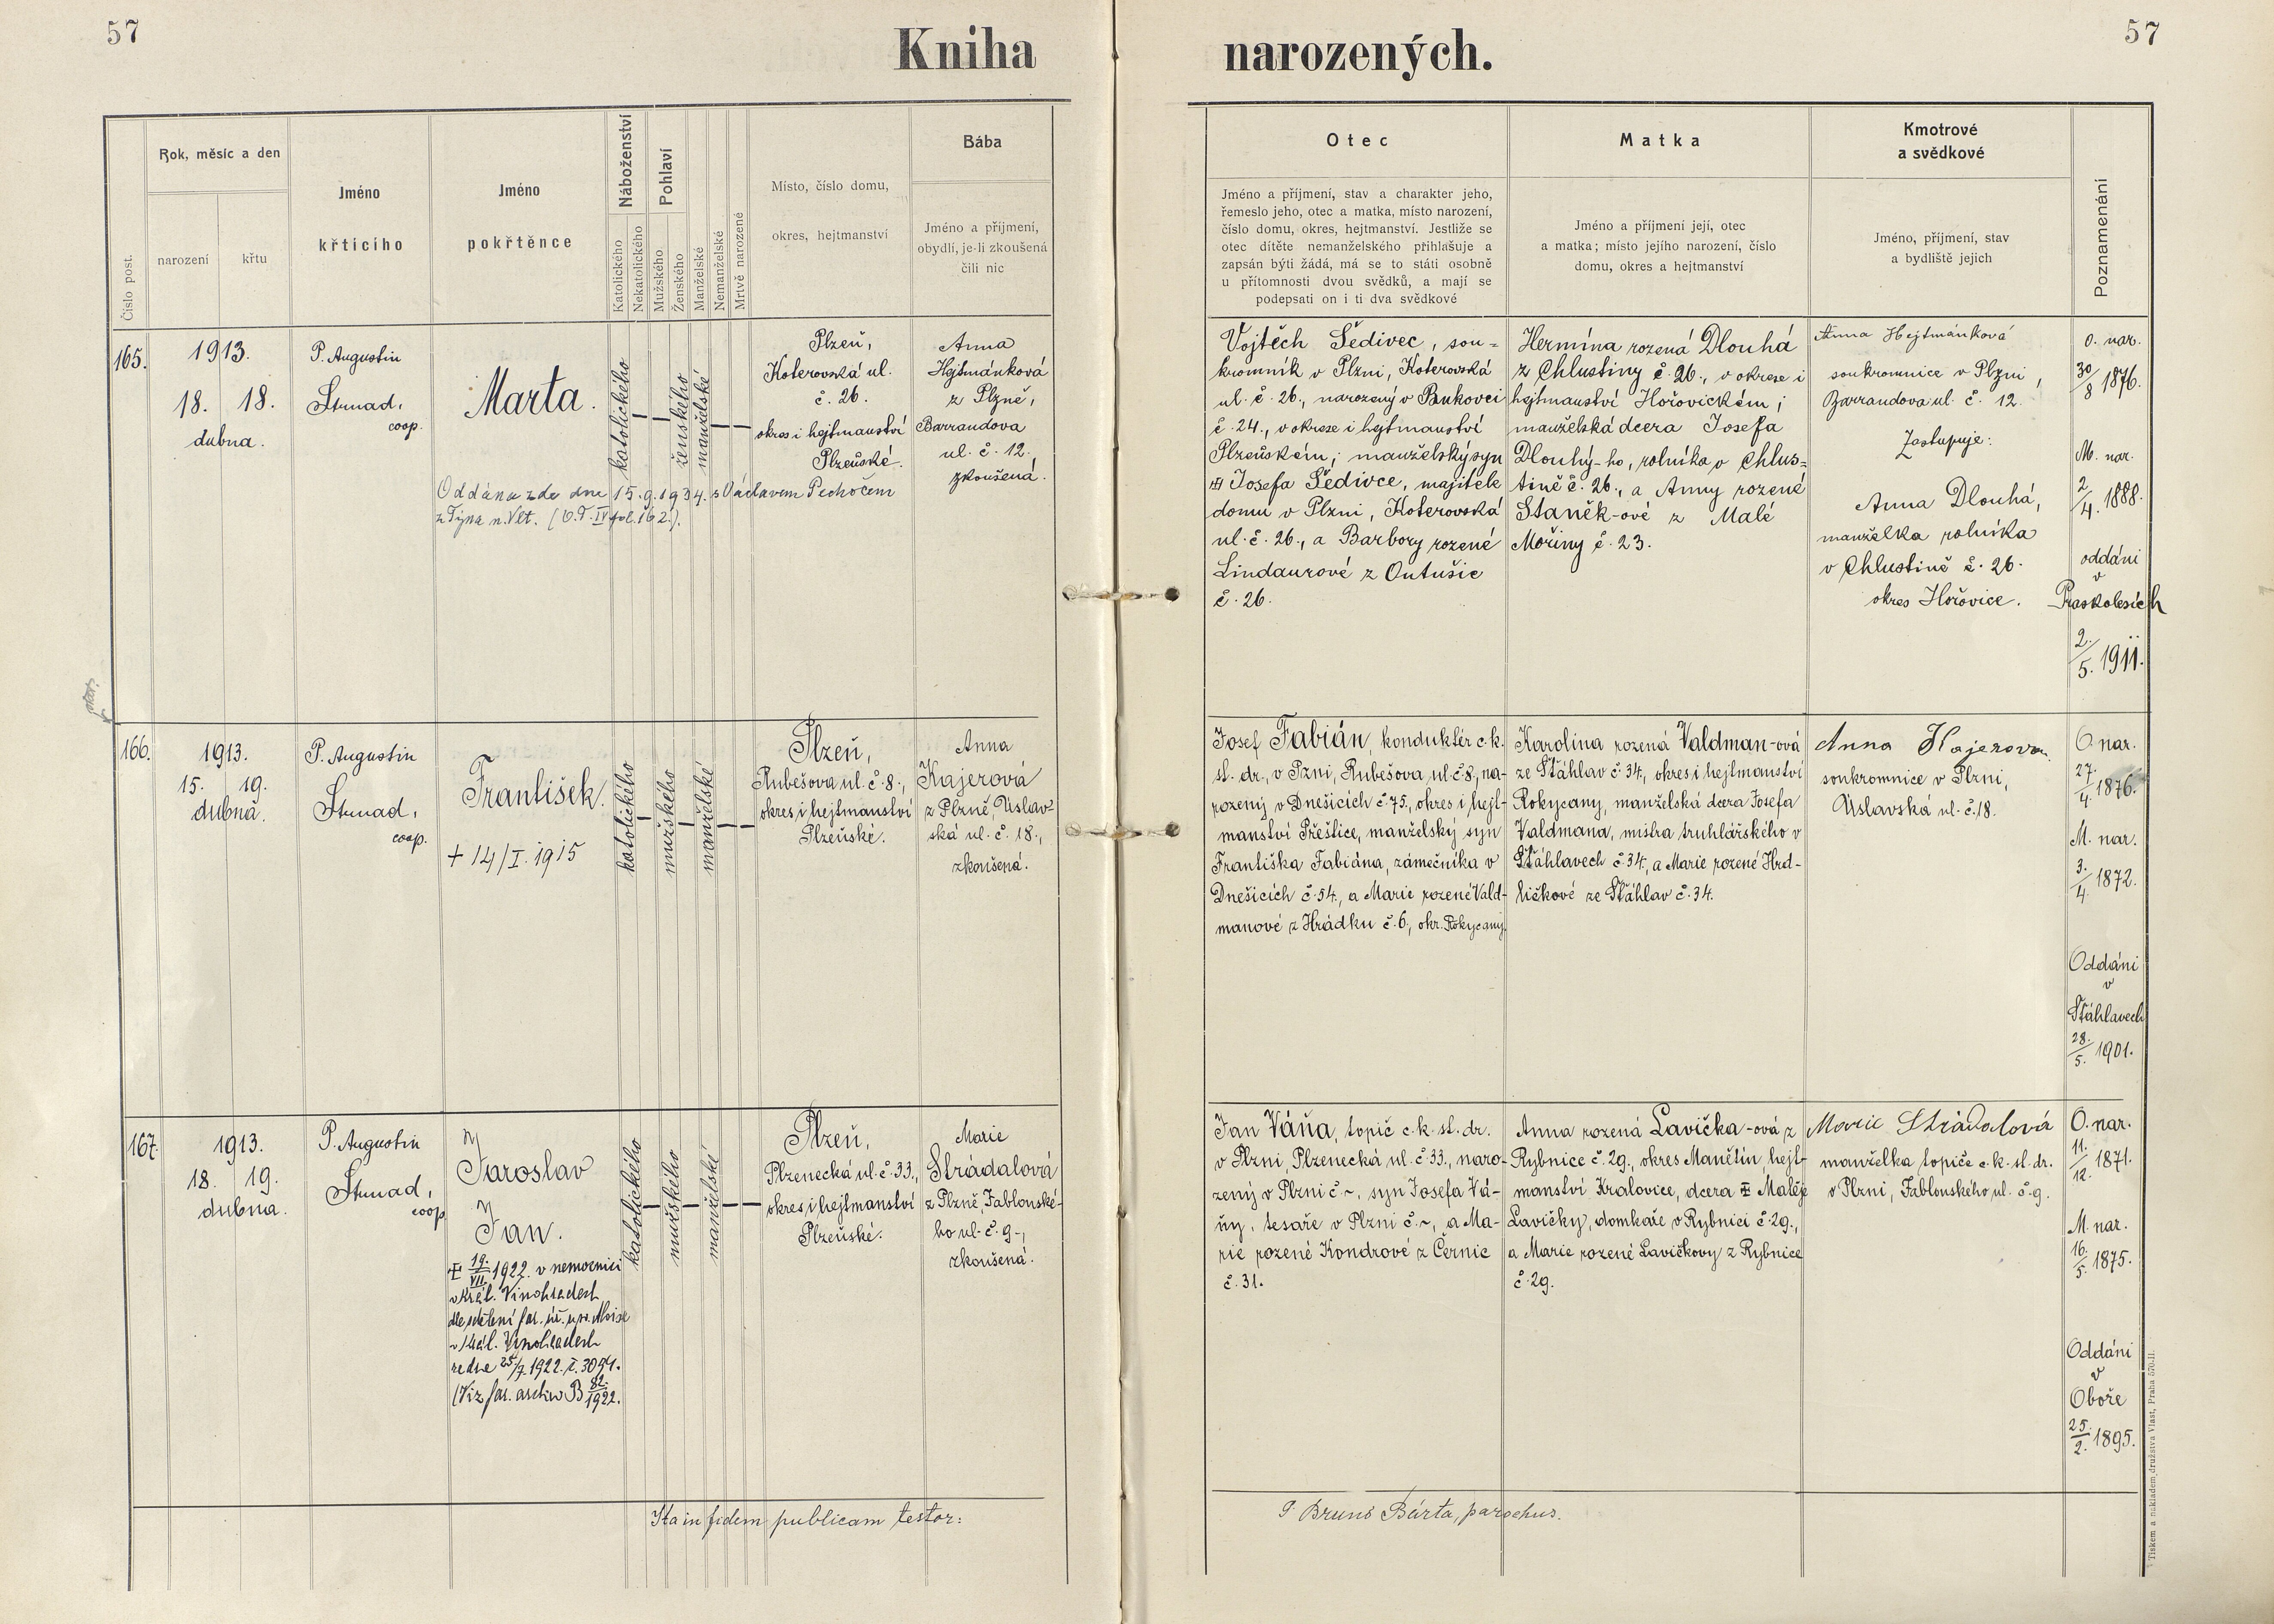 57
Kniha
Číslo post.
Rok, měsíc a den
narození
křtu
Jméno
křtícího
Jméno
pokřtěnce
Náboženství
Katolického
Nekatolického
Pohlaví
Mužského
Ženského
Manželské
Nemanželské
Mrtvě narozené
Místo, číslo domu,
okres, hejtmanství
Bába
Jméno a příjmení,
obydlí, je-li zkoušená
čili nic
165.
1913.
18. 18.
dubna.
P. Augustin
Strnad,
coop.
Marta.
katolického
ženského
manželské
Plzeň,
Koterovská ul.
č. 26.
okres i hejtmanství
Plzeňské.
Anna
Hejtmánková
z Plzně,
Barrandova
ul. č. 12.
zkoušená.
Oddána zde dne 15.9.1934. s Václavem Pechočem
z Týna n. Vlt. (O.T. IV fol. 162.).
166.
1913.
15. 19.
dubna.
P. Augustin
Strnad,
coop.
František.
+ 14/I. 1915
katolického
mužského
manželské
Plzeň,
Rubešova ul. č. 8.,
okres i hejtmanství
Plzeňské.
Anna
Kajerová
z Plzně, Úslav-
ská ul. č. 18.,
zkoušená.
167.
1913.
18. 19.
dubna.
P. Augustin
Strnad,
coop.
Jaroslav
Jan.
katolického
mužského
manželské
19./VII. 1922. v nemocnici
v Král. Vinohradech
dle sdělení far. úř.
v Král. Vinohradech
ze dne 25/7. 1922. č. 3094.
(Viz far. archiv B 82./1922.
Plzeň,
Plzenecká ul. č. 33.,
okres i hejtmanství
Plzeňské.
Marie
Strádalová
z Plzně, Jablonské-
ho ul. č. 9.,
zkoušená.
Ita in fidem publicam testor:
57
narozených.
Otec
Jméno a příjmení, stav a charakter jeho,
řemeslo jeho, otec a matka, místo narození,
číslo domu, okres, hejtmanství. Jestliže se
otec dítěte nemanželského přihlašuje a
zapsán býti žádá, má se to státi osobně
u přítomnosti dvou svědků, a mají se
podepsati on i ti dva svědkové
Matka
Jméno a příjmení její, otec
a matka; místo jejího narození, číslo
domu, okres a hejtmanství
Kmotrové
a svědkové
Jméno, příjmení, stav
a bydliště jejich
Poznamenání
Vojtěch Šedivec, sou-
kromník v Plzni, Koterovská
ul. č. 26., narozený v Bukovci
č. 24., v okrese i hejtmanství
Plzeňském; manželský syn
Josefa Šedivce, majitele
domu v Plzni, Koterovská
ul. č. 26., a Barbory rozené
Lindaurové z Outušic
č. 26.
Hermína rozená Dlouhá
z Chlustiny č. 26., v okrese i
hejtmanství Hořovickém;
manželská dcera Josefa
Dlouhý-ho, rolníka v Chlus-
tině č. 26., a Anny rozené
Staněk-ové z Malé
Mořiny č. 23.
Anna Hejtmánková
soukromnice v Plzni,
Barrandova ul. č. 12.
Zastupuje:
Anna Dlouhá,
manželka rolníka
v Chlustině č. 26.
okres Hořovice.
O. nar.
30/8 1876.
M. nar.
2/4. 1888.
oddáni
v
Praskolesích
2./5. 1911.
Josef Fabián, konduktér c. k.
st. dr., v Pzni, Rubešova ul. č. 8., na-
rozený v Dnešicích č. 75., okres i hejt-
manství Přeštice, manželský syn
Františka Fabiána, zámečníka v
Dnešicích č. 54., a Marie rozené Vald-
manové z Hrádku č. 6., okr. Rokycany.
Karolina rozená Valdman-ová
ze Šťáhlav č. 34., okres i hejtmanství
Rokycany, manželská dcera Josefa
Valdmana, mistra truhlářského v
Šťáhlavech č. 34., a Marie rozené Hrd-
ličkové ze Šťáhlav č. 34.
Anna Kajerova
soukromnice v Plzni,
Úslavská ul. č. 18.
O. nar.
27./4. 1876.
M. nar.
3./4. 1872.
Oddáni
v
Šťáhlavech
28./5. 1901.
Jan Váňa, topič c. k. st. dr.
v Plzni, Plzenecká ul. č. 33., naro-
zený v Plzni č ~, syn Josefa Vá-
ňy, tesaře v Plzni č. ~, a Ma-
rie rozené Kondrové z Černic
č. 31.
Anna rozená Lavička-ová z
Rybnice č. 29., okres Manětín, hejt-
manství Kralovice, dcera Matěje
Lavičky, domkaře v Rybnici č. 29.,
a Marie rozené Lavičkovy z Rybnice
č. 29.
Marie Strádalová
manželka topiče c. k. st. dr.
v Plzni, Jablonského ul. č. 9.
O. nar.
11./12. 1871.
M. nar.
16./5. 1875.
Oddáni
v
Oboře
25./2. 1895.
P. Bruno Bárta, parochus.
Tiskem a nákladem družstva Vlast, Praha 570-II.